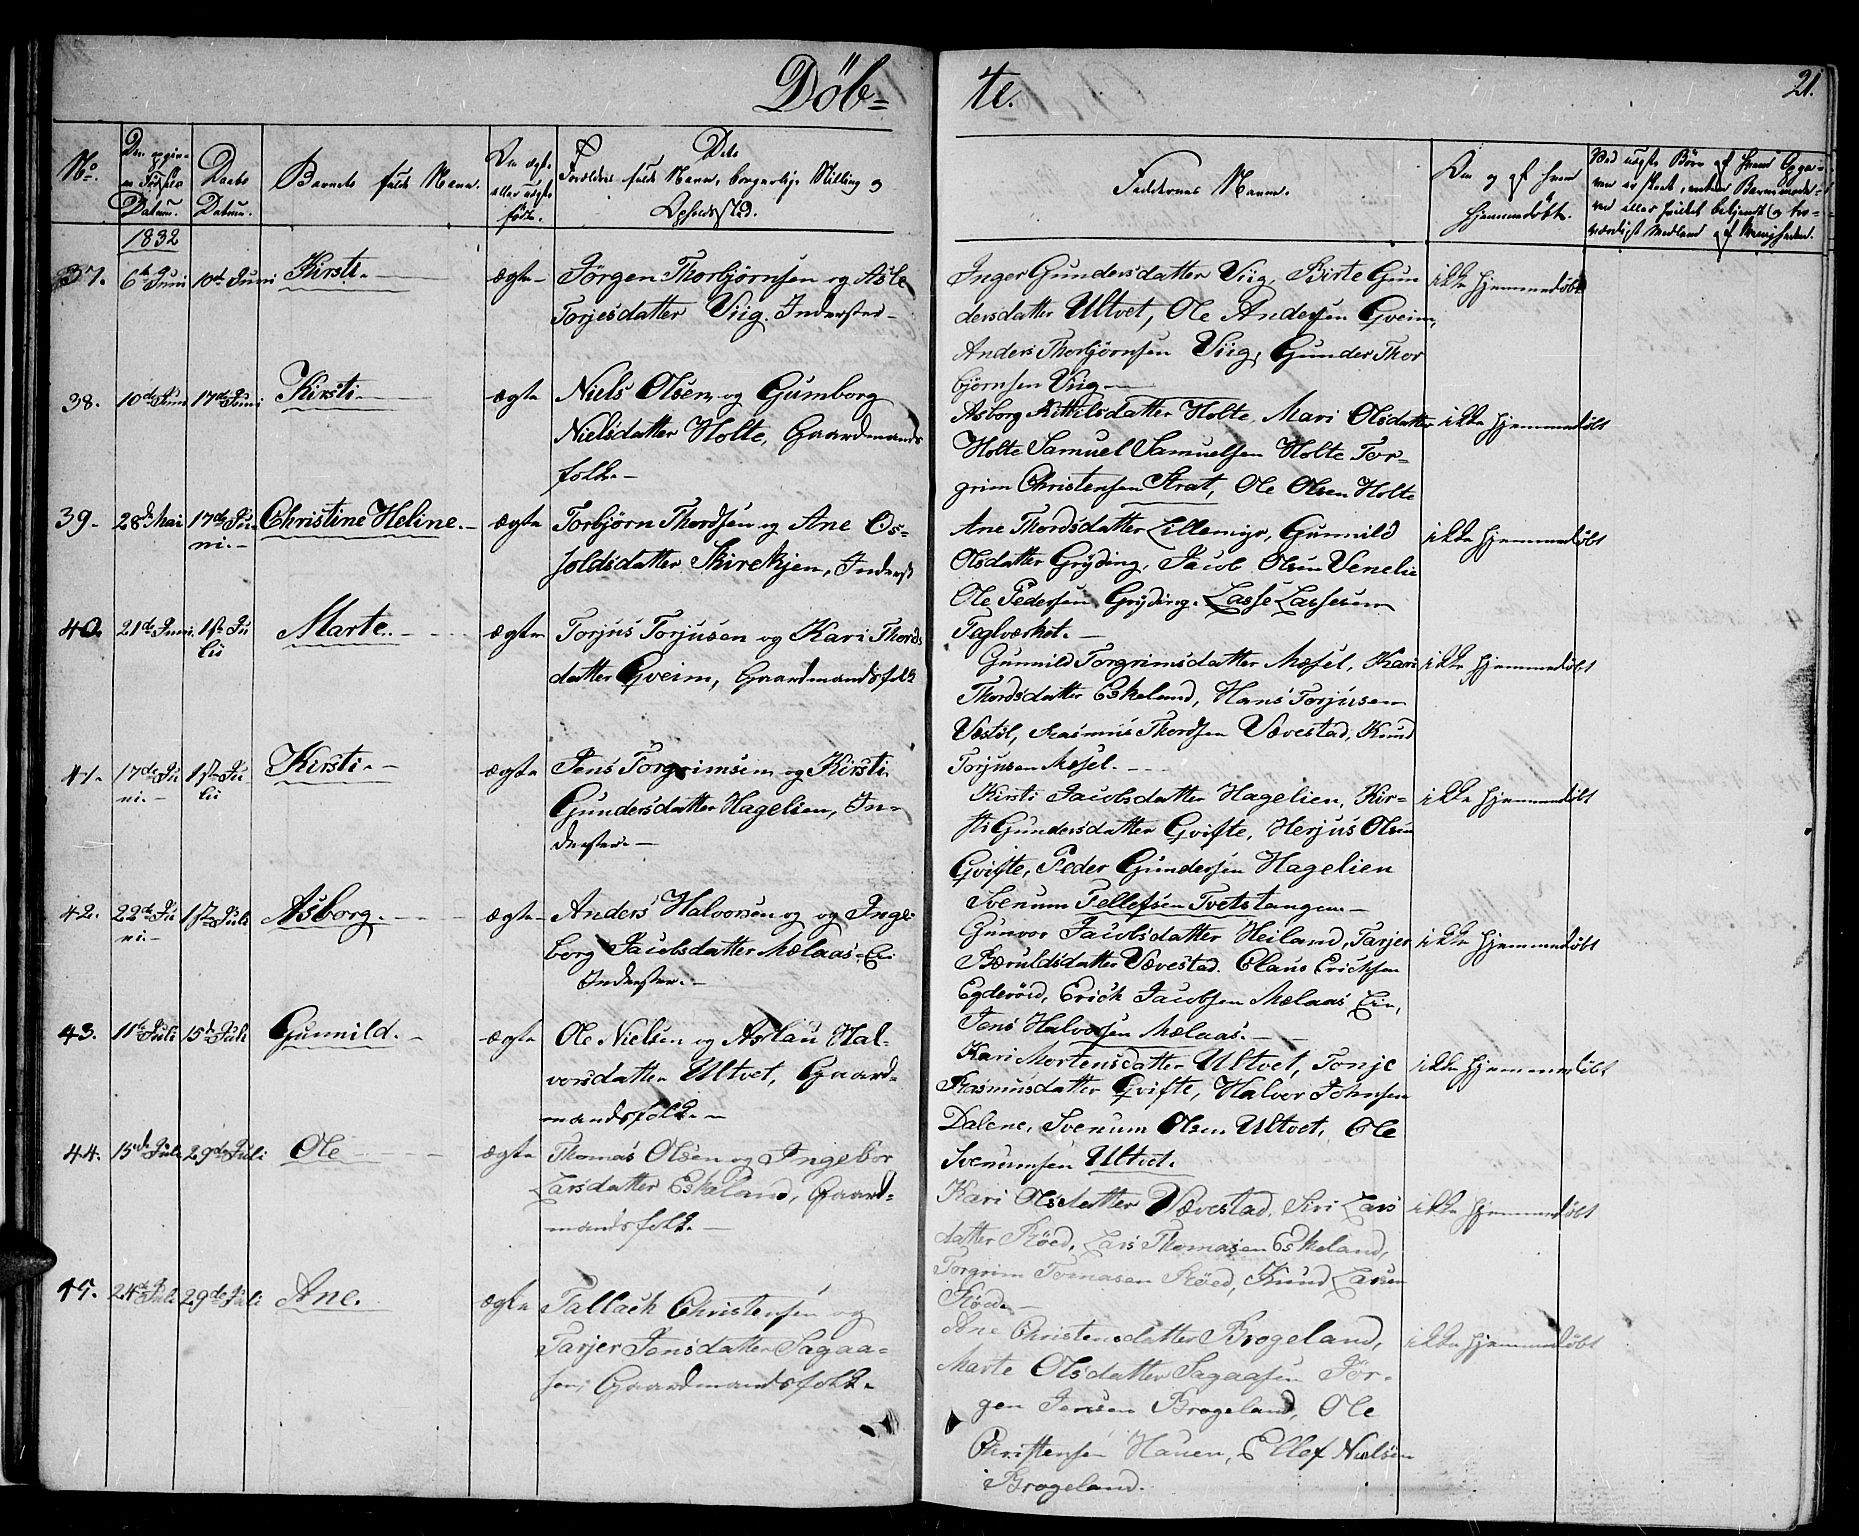 Döb=
te.
21.
No.
Datum.
Daabs
Datum.
Barnets fulde Navn.
Om ægte
eller uægte
født.
Dets
Forældres fulde Navn, borgerlige Stilling og
Opholdssted.
Faddernes Navne.
Om og af hvem
hjemmedöbt.
1832
37. 6te Juni 10de Juni Kirsti. ægte Jörgen Thorbjörnsen og Asle
Torjesdatter Viig. Inderster
Inger Gundersdatter Viig, Birte Gun
dersdatter Ultvet, Ole Andersen Gveim,
Anders Thorbjörnsen Viig, Gunder Thor
björnsen Viig
ikke hjemmedöbt
38. 10de Juni 17de Juni Kirsti ægte Niels Olsen og Gumborg
Nielsdatter Holte, Gaardmands
folk
Asborg Kittilsdatter Holte, Mari Olsdatter
Holte Samuel Samuelsen Holte Tor=
grim Christensen Strat, Ole Olsen Holte
ikke hjemmedöbt
39. 28de Mai 17de Ju
ni. Christine Heline. ægte Torbjörn Thordsen og Ane Os=
holdsdatter Skirekjen, Inderst
Ane Thordsdatter Lillemyr, Gunnild
Olsdatter Gryding, Jacob Olsen Venelie
Ole Pedersen Gryding. Lasse Lassesen
Teglværket.
ikke hjemmedöbt
40. 21de Juni 1ste Ju
lii Marte. ægte Torjus Torjusen og Kari Thords
datter Gveim, Gaardmandsfolk
Gunnild Torgrimsdatter Mesel, Kari
Thordsdatter Eskeland, Hans Torjusen
Vestöl, Rasmus Thordsen Vævestad, Knud
Torjusen Mesel.
ikke hjemmedöbt
41. 17de Ju
ni. 1ste Ju
lii Kirsti. ægte Jens Torgrimsen og Kirsti
Gundersdatter Hagelien, In=
derster.
Kirsti Jacobsdatter Hagelien, Kir=
sti Gundersdatter Gvifte, Herjus Olsen
Gvifte, Peder Gundersen Hagelien
Svenum Tellefsen Tvetstangen
ikke hjemmedöbt
42. 22de Ju
ni. 1ste Juli Asborg. ægte Anders Halvorsen og og Inge=
borg Jacobsdatter Mælaas=Ei
Inderster.
Gunvor Jacobsdatter Heiland, Tarjer
Bæruldsdatter Vævestad. Claus Erichsen
Egderöid, Erich Jacobsen Mælaas Ein,
Jens Halvorsen Mælaas.
ikke hjemmedöbt
43. 11te Juli 15de Juli Gunnild. ægte Ole Nielsen og Aslau Hal=
vorsdatter Ultvet, Gaard=
mandsfolk.
Kari Mortensdatter Ultvet, Tonje
Rasmusdatter Gvifte, Halvor Johnsen
Dalene, Svenum Olsen Ultvet, Ole
Svenumsen Ultvet.
ikke hjemmedöbt
44. 15de Juli 29de Juli Ole ægte Thomas Olsen og Ingebor
Larsdatter Eskeland, Gaard=
mandsfolk.
Kari Olsdatter Vævestad, Siri Lars
datter Röed, Lars Thomasen Eskeland,
Torgrim Tomasen Röed, Knud Larsen
Röed
ikke hjemmedöbt
45. 24de Juli 29de Juli Ane. ægte Tallach Christensen og
Tarjer Jensdatter Sagaa=
sen, Gaardmandsfolk.
Ane Christensdatter Brogeland,
Marte Olsdatter Sagaasen Jör=
gen Jensen Brogeland, Ole
Christensen Hauen, Ellef Nielsen
Brogeland.
ikke hjemmedöbt